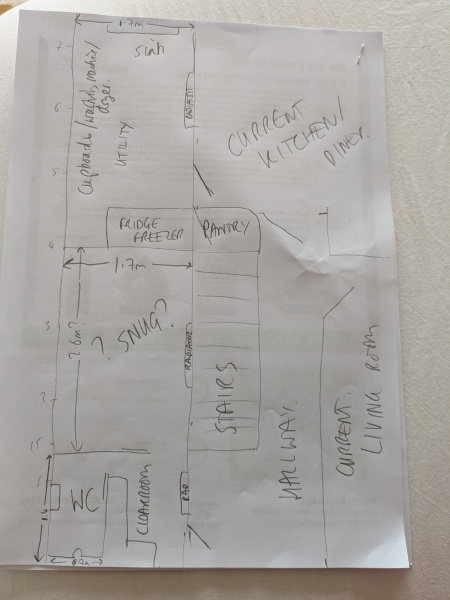 1.7m
Sink
7
Cupboards/washing machine/
dryer.
UTILITY.
RADIATOR
6
CURRENT
KITCHEN/
DINER.
5
FRIDGE
FREEZER
PANTRY
4
1.7m
2.6m?
? SNUG?
3
RADIATOR
STAIRS
2
HALLWAY.
CURRENT
LIVING ROOM
1.5
1
WC
CLOAKROOM
RAD